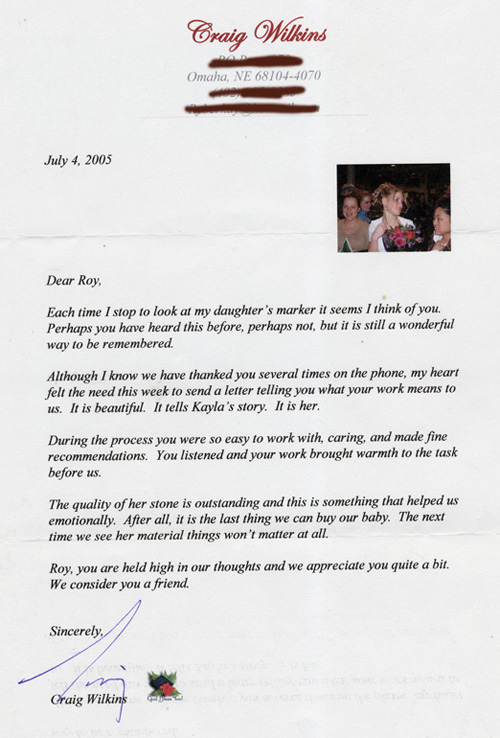 Craig Wilkins
Omaha, NE 68104-4070
July 4, 2005
Dear Roy,
Each time I stop to look at my daughter's marker it seems I think of you.
Perhaps you have heard this before, perhaps not, but it is still a wonderful
way to be remembered.
Although I know we have thanked you several times on the phone, my heart
felt the need this week to send a letter telling you what your work means to
us. It is beautiful. It tells Kayla's story. It is her.
During the process you were so easy to work with, caring, and made fine
recommendations. You listened and your work brought warmth to the task
before us.
The quality of her stone is outstanding and this is something that helped us
emotionally. After all, it is the last thing we can buy our baby. The next
time we see her material things won't matter at all.
Roy, you are held high in our thoughts and we appreciate you quite a bit.
We consider you a friend.
Sincerely,
Craig Wilkins